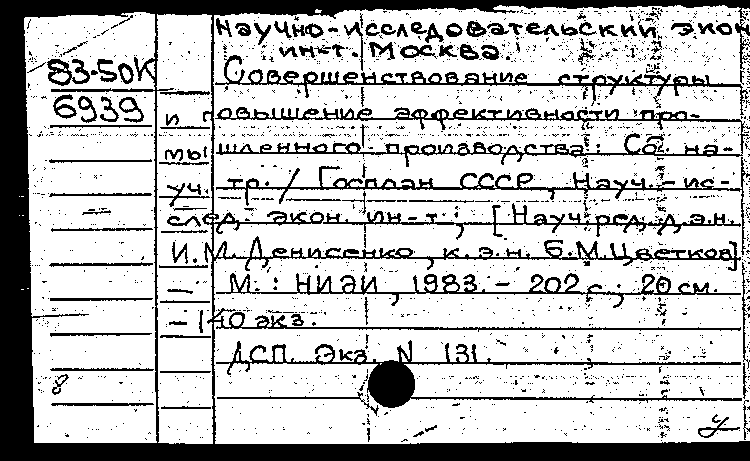 Научно-исследовательский экон
ин-т. Москва.
83-50К Совершенствование структуры
6939 и повышение эффективности про-
мышленного производства: Сб. на-
уч. тр. / Госплан СССР, Науч.-ис-
след. экон. ин-т; [Науч. ред. д.э.н.
И.М. Денисенко, к.э.н. Б.М. Цветков]
— М.: НИЭИ, 1983. – 202 с.; 20 см.
– 140 экз.
ДСП. Экз. N 131.
8
у